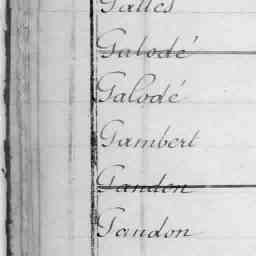 Galles
Galodé
Galodé
Gambert
Gandon
Gandon